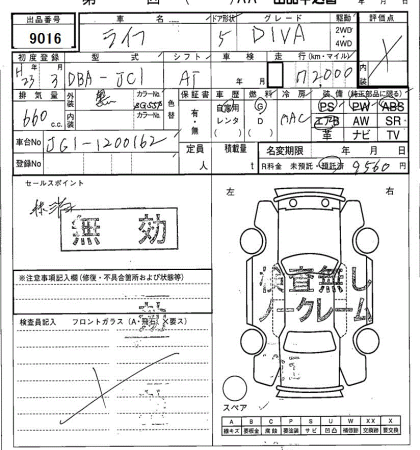 第 回 ( )AA 出品申込書 年 月 日
出品番号 車 名 ドア形状 グレード 駆動 評価点
9016 ライフ 5 DIVA 2WD・4WD
初度登録 型 式 シフト 車 検 走行(km・マイル) 内装
H23 3 DBA-JC1 AT 年 月 72000
排気量 外装 内装 カラーNo. カラーNo. 色替 保証書 車歴 燃料 冷房 装備 (純正部品に限る)
660 c.c. 黒 有・無 自家用 レンタ G D AAC PS PW ABS
エアB AW SR
革 ナビ TV
車台No JG1-1200162
登録No 定員 人 積載量 t 名変期限 年 月 日
R料金 未預託・預託済 9560 円
セールスポイント
無効
左 右
※注意事項記入欄 (修復・不具合箇所および状態等)
検査無し
ノークレーム
検査員記入 フロントガラス (A・飛石・X要ス)
スペア
A B C P S U W XX X
線キズ 要板金 腐蝕 要塗装 サビ 凹凸 補修跡 交換跡 要交換